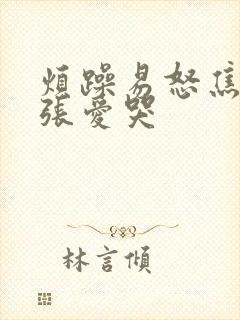 煩躁易怒焦
張愛哭
林言傾